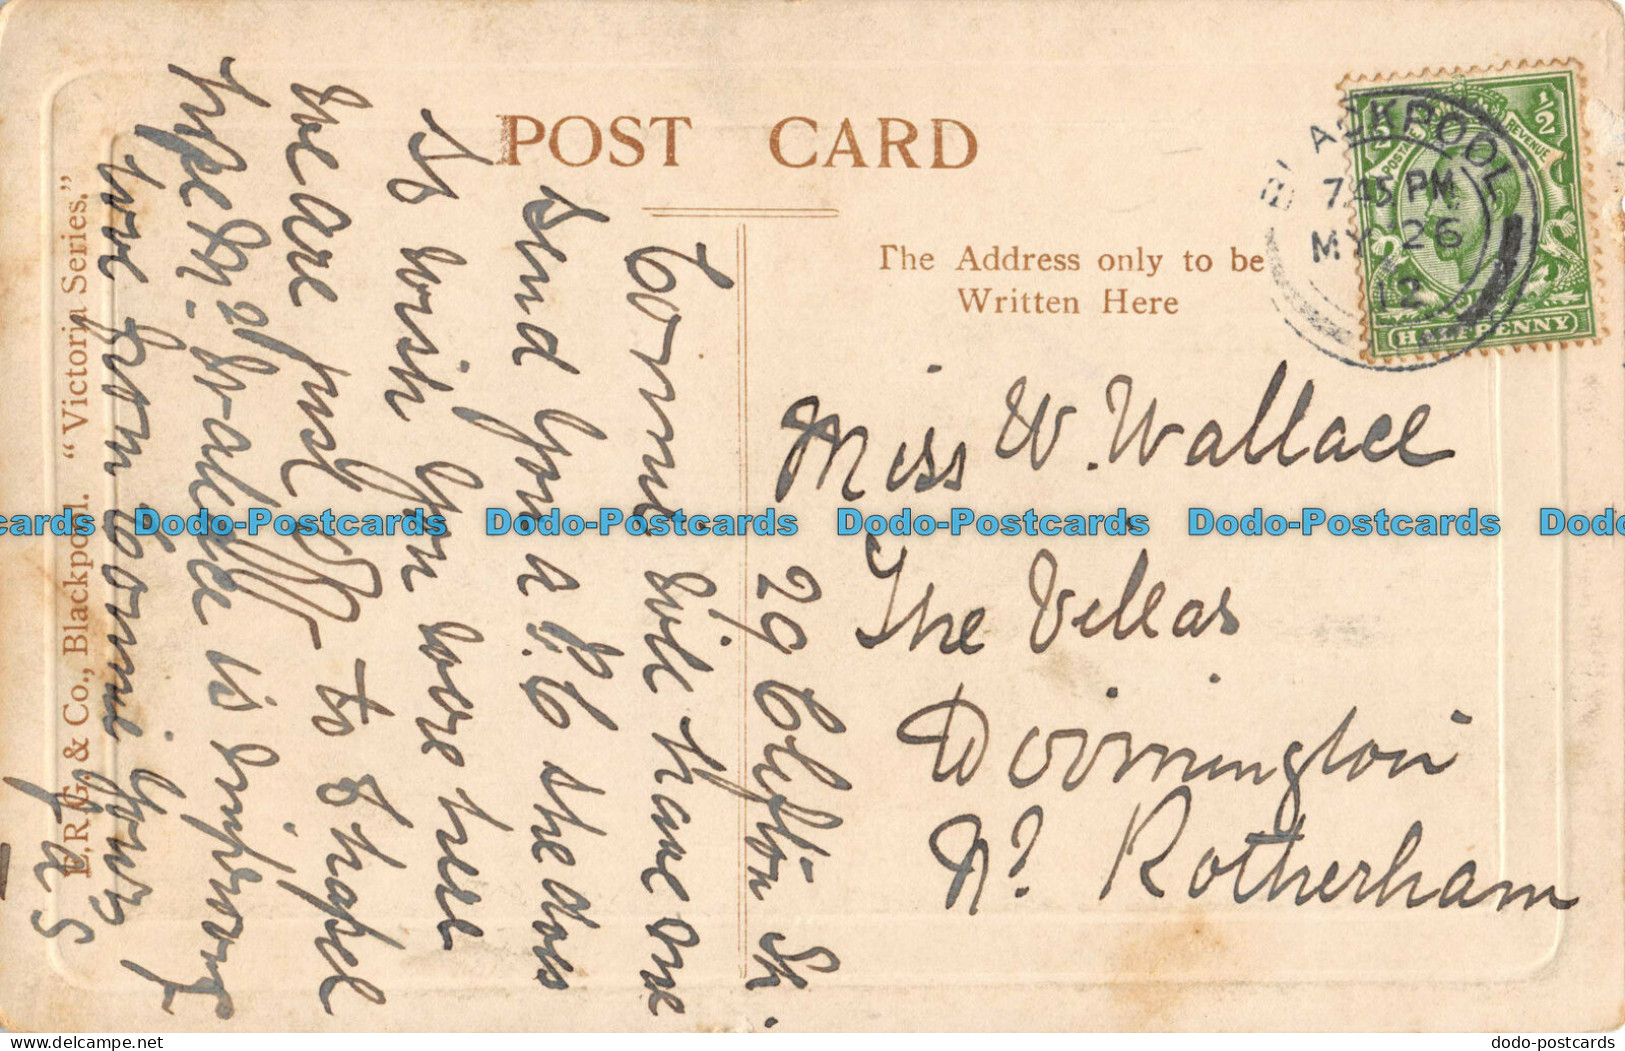 POST CARD
The Address only to be
Written Here
BLACKPOOL
7.45 PM
MY 26
12
POSTAGE REVENUE
1/2
HALFPENNY
Miss W. Wallace
The Villas
Doinnington
Nr Rotherham
29 Clifton St.
Connie will have one
send you a P.C she does
so wish you were here
we are just off to Chapel
hope Mrs Wallace is improving
love from Connie yours
E.R.G. & Co., Blackpool. "Victoria Series."
Dodo-Postcards Dodo-Postcards Dodo-Postcards Dodo-Postcards
www.delcampe.net
dodo-postcards